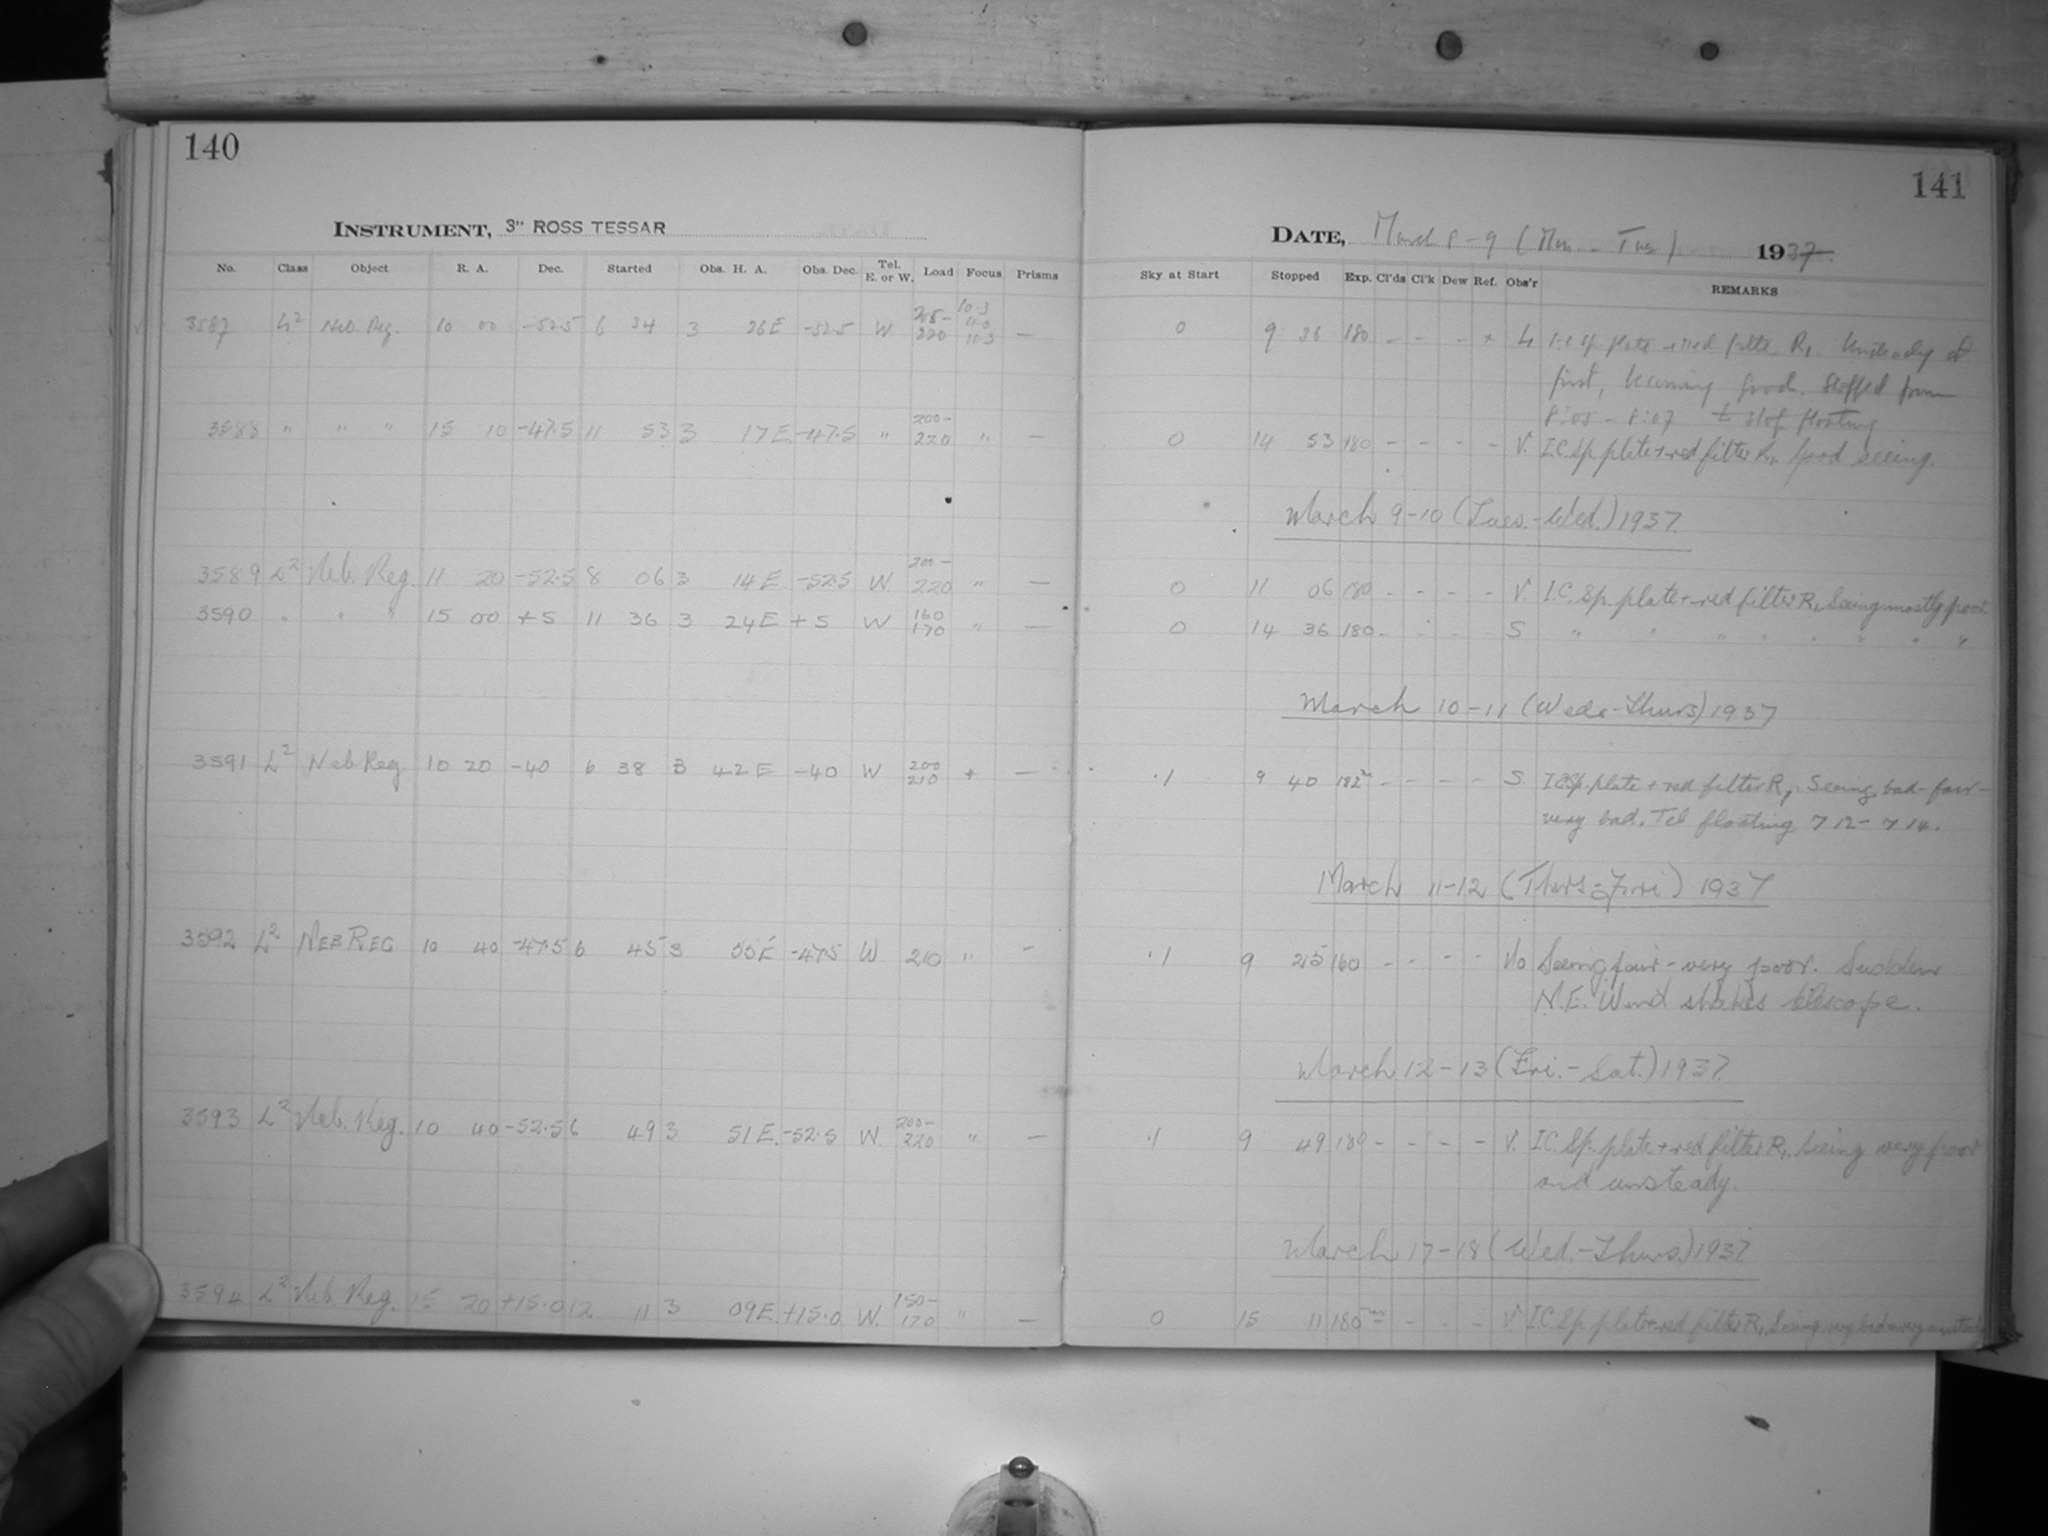 140
INSTRUMENT, 3" ROSS TESSAR
No. Class Object R. A. Dec. Started Obs. H. A. Obs. Dec. Tel. E. or W. Load Focus Prisms
3587 L² Neb. Reg. 10 00 -52.5 6 34 3 26E -52.5 W 220 10.3 11.0 11.3 —
3588 " " " 15 10 -47.5 11 53 3 17E -47.5 " 200- 220 " —
3589 L² Neb. Reg. 11 20 -52.5 8 06 3 14E -52.5 W 200- 220 " —
3590 " " " 15 00 +5 11 36 3 24E +5 W 160 170 " —
3591 L² Neb Reg 10 20 -40 6 38 3 42E -40 W 200 210 + —
3592 L² NEB REG 10 40 -47.5 6 45 3 55E -47.5 W 210 " -
3593 L² Neb. Reg. 10 40 -52.5 6 49 3 51E. -52.5 W. 200- 220 " —
3594 L² Neb. Reg. 15 20 +15.0 12 11 3 09E +15.0 W. 150- 170 " —
141
DATE, March 8-9 (Mon - Tues) 1937.
Sky at Start Stopped Exp. Cl'ds Cl'k Dew Ref. Obs'r REMARKS
0 9 36 180 - - - + L I.C sp. plate + red filter R₁. Unsteady at
first, becoming good. Stopped from
8:05 - 8:07 to stop floating
0 14 53 180 - - - - V. I.C. Sp. plate + red filter R₁. Good seeing.
March 9-10 (Tues.-Wed.) 1937.
0 11 06 180 - - - - V. I.C. Sp. plate + red filter R₁. Seeing mostly poor.
0 14 36 180 - - - - S " " " " " " " "
March 10-11 (Weds-Thurs) 1937
.1 9 40 182ᵐ - - - - S. ICSp. plate + red filter R₁. Seeing bad-fair-
very bad. Tel floating 7 12 - 7 14.
March 11-12 (Thurs-Fri) 1937
.1 9 25 160 - - - - Vo Seeing fair - very poor. Sudden
N.E. Wind shakes telescope.
March 12-13 (Fri.-Sat.) 1937.
.1 9 49 180 - - - - V. I.C. Sp. plate + red filter R₁. Seeing very poor
and unsteady.
March 17-18 (Wed.-Thurs.) 1937.
0 15 11 180 - - - - V. I.C. Sp. plate + red filter R₁. Seeing very bad